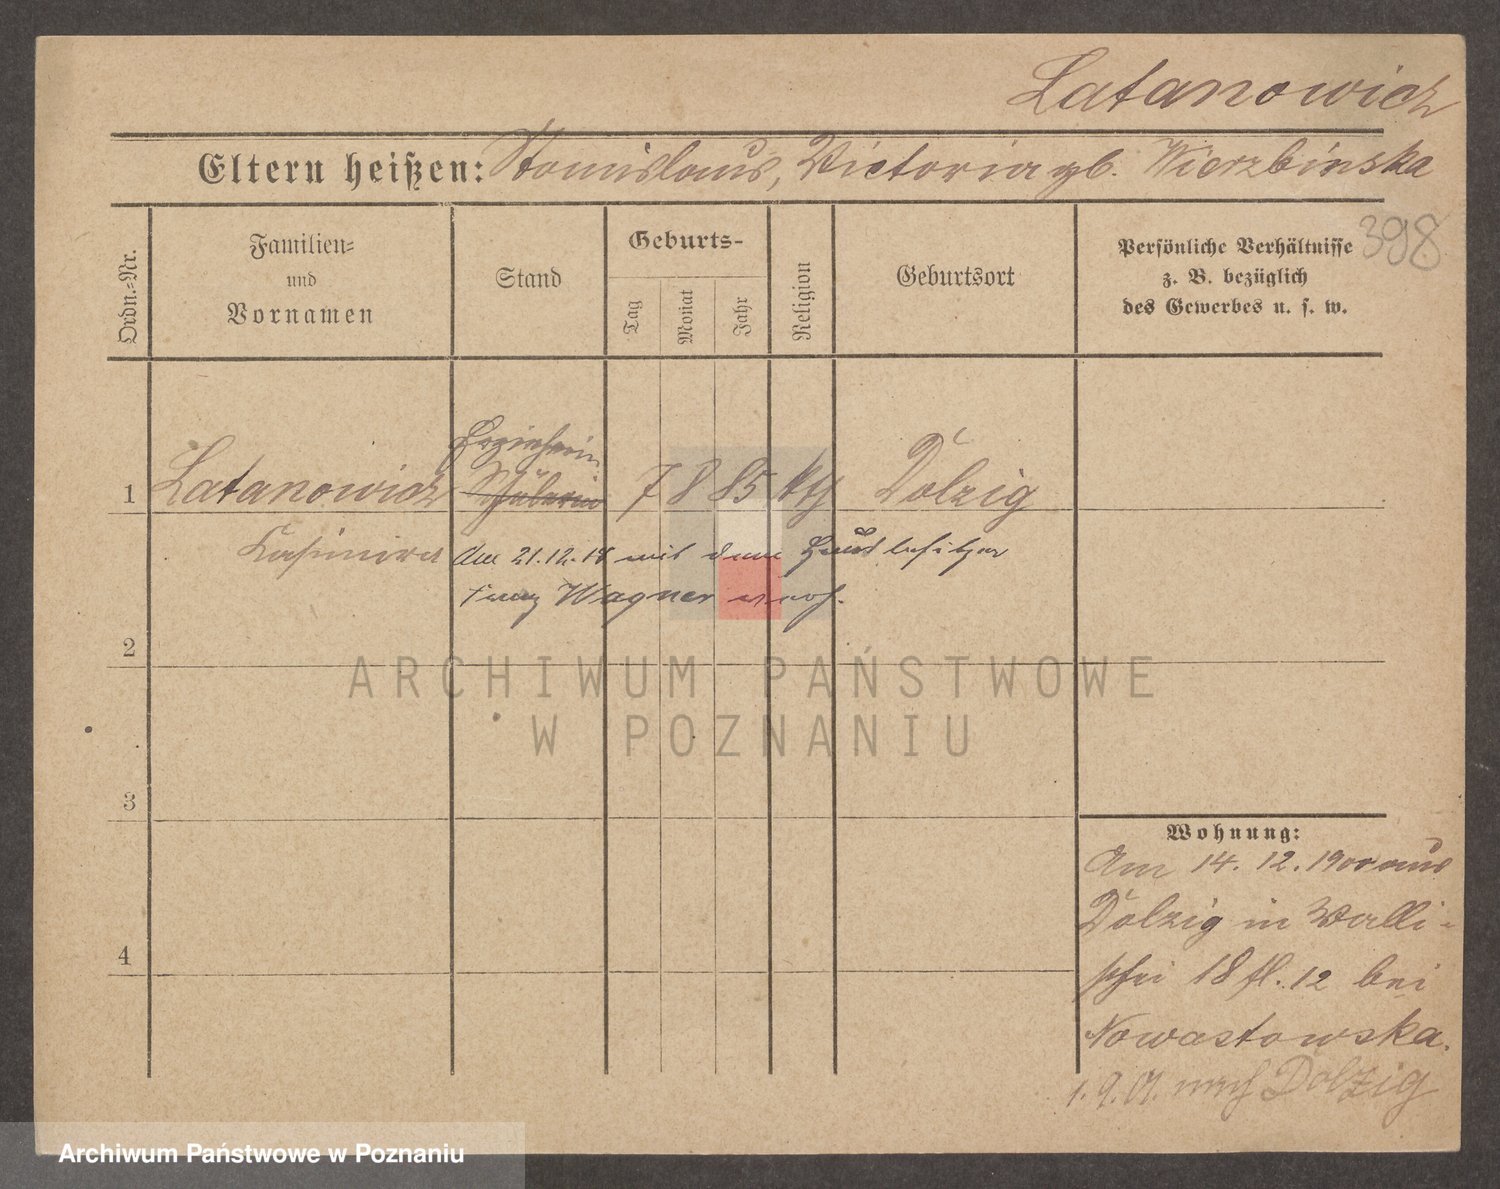 Latanowicz
Eltern heißen: Stanislaus, Victoria gb. Wierzbinska
398
Ordn.-Nr.
Familien-
und
Vornamen
Stand
Geburts-
Tag
Monat
Jahr
Religion
Geburtsort
Persönliche Verhältnisse
z. B. bezüglich
des Gewerbes u. s. w.
Erzieherin
1 Latanowicz Schülerin 7 8 85 kth Dolzig
Kasimira Am 21.12.18 mit dem Hausbesitzer
Franz Wagner verh.
2
ARCHIWUM PAŃSTWOWE
W POZNANIU
3
Wohnung:
Am 14. 12. 1900 aus
Dolzig in Walli-
schei 18 fl. 12 bei
4
Nowastowska.
1. 9. 01. nach Dolzig
Archiwum Państwowe w Poznaniu